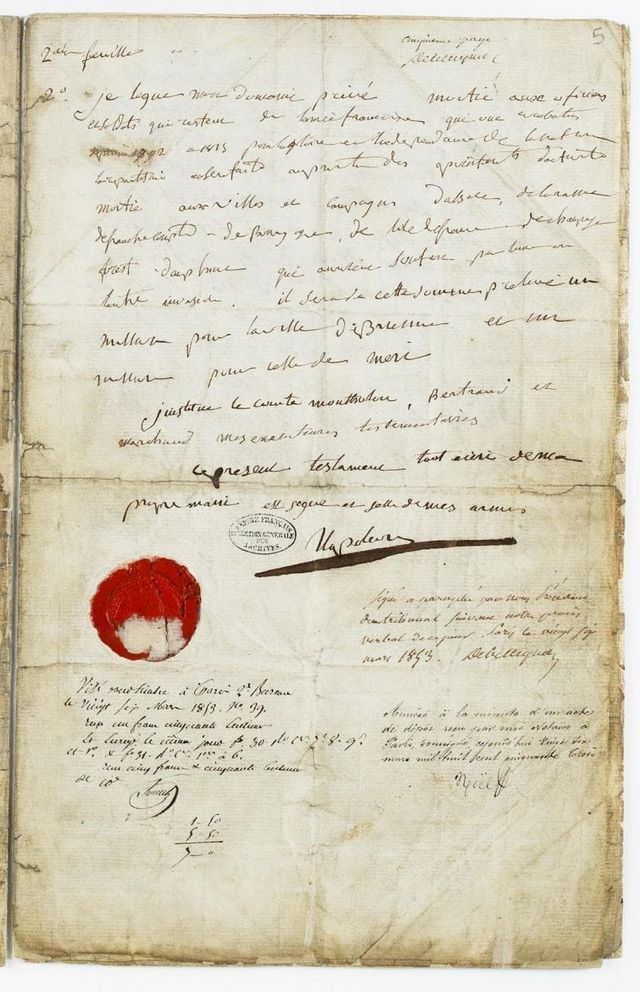 2eme feuille
cinquieme page
Debelleyme
5
2°. je legue mon domaine privé moitié aux officiers
et soldats qui restent de l'armée française qui ont combatus
1792 a 1815 pour la gloire et l'independance de la nation
la repartition en sera faite au prorata des apointements d'activité
moitié aux villes et campagnes d'alsace, de loraine
de franche comté - de Bourgogne, de l'ile de france de champagne
forest dauphiné qui auraient souffert par l'une ou
l'autre invasion. il sera de cette somme prelevé un
million pour la ville de Brienne et un
million pour celle de meri
j'institue le comte montholon, Bertrand et
marchand mes executeures testementaires
ce present testament tout ecrit de ma
propre main est signé et scellé de mes armes
Napoleon
EMPIRE FRANÇAIS
DIRECTION GÉNÉRALE
DES
ARCHIVES
Signé et paraphé par nous Président
du tribunal suivant notre procès
verbal de ce jour. Paris le vingt six
mars 1853. Debelleyme
Visé pour timbre à Paris 2e Bureau
le vingt six Mars 1853. No. 39.
reçu un franc cinquante centimes
et enregé le même jour fo 30 Ro Cn 7 8. 9e
et Vo. & fo 31. Ro Cn 1er à 6.
reçu cinq francs & cinquante centimes
de 10e
1 50
5 50
7 "
Annexé à la minute d'un acte
de dépôt reçu par Me Notaire à
Paris, soussigné, cejourd'hui vingt six
mars mil huit cent cinquante trois
Noël